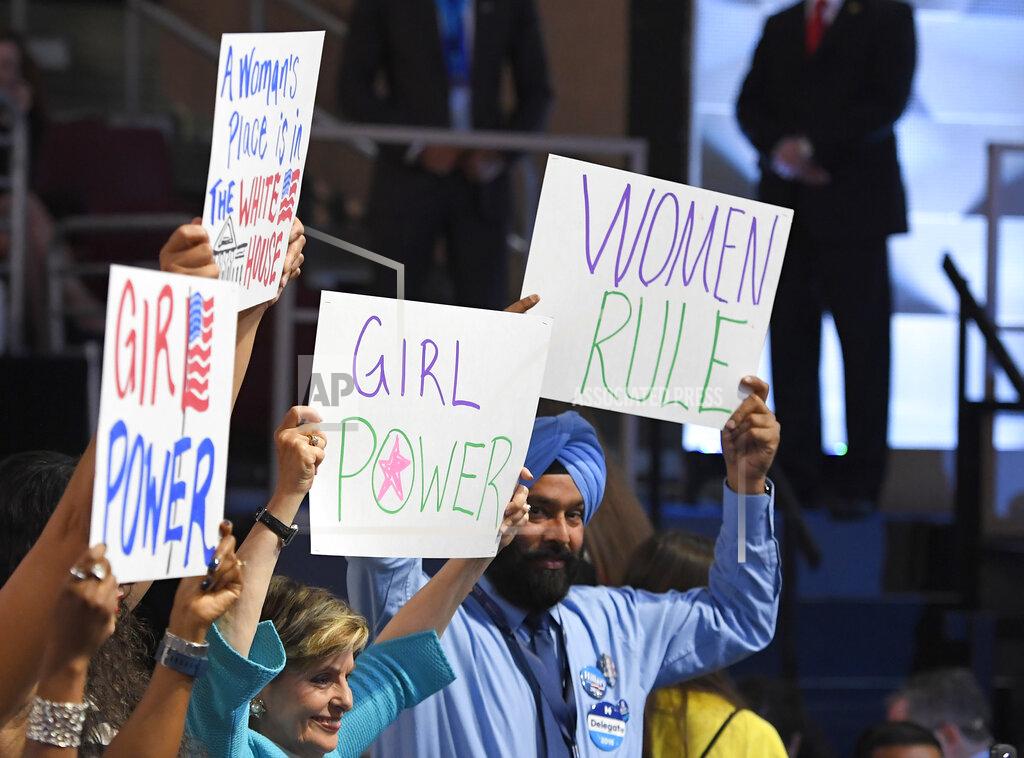 A Woman's
Place is in
THE WHITE
HOUSE
GIRL
POWER
GIRL
POWER
WOMEN
RULE
AP
ASSOCIATED PRESS
Hillary
H
Delegate
2016